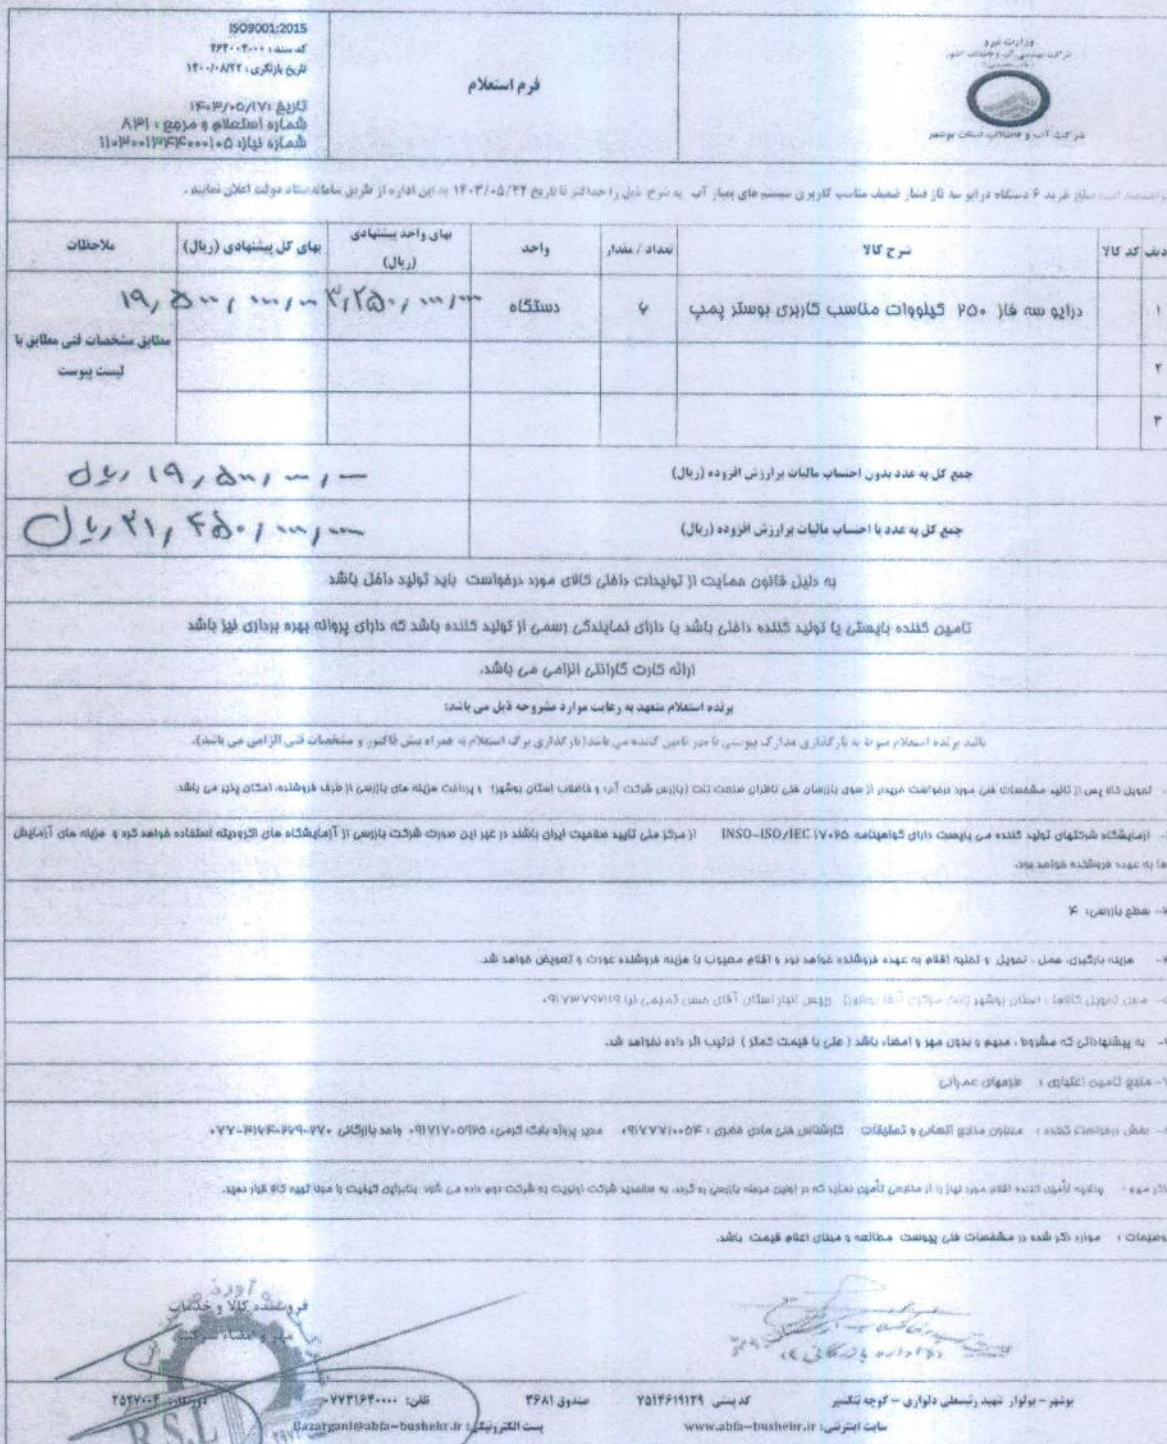 ISO9001:2015
کد سند : ۲۶۴۰۰۴-۰۰
تاریخ بازنگری : ۱۴۰۰/۰۸/۲۲
تاریخ :۱۴۰۳/۰۵/۱۷
شماره استعلام و مرجع : ۸۳۱
شماره نیاز: ۱۱۰۳۰۰۱۳۴۴۰۰۰۱۰۵
فرم استعلام
وزارت نیرو
شرکت آب و فاضلاب استان بوشهر
خرید ۶ دستگاه درایو سه فاز فشار ضعیف مناسب کاربری سیستم های پمپاژ آب به شرح ذیل را حداکثر تا تاریخ ۱۴۰۳/۰۵/۲۴ به این اداره از طریق سامانه ستاد دولت اعلان نمایند.
ردیف کد کالا شرح کالا تعداد / مقدار واحد بهای واحد پیشنهادی (ریال) بهای کل پیشنهادی (ریال) ملاحظات
۱ درایو سه فاز ۲۵۰ کیلووات مناسب کاربری بوستر پمپ ۶ دستگاه ۳,۲۵۰,۰۰۰,۰۰۰ ۱۹,۵۰۰,۰۰۰,۰۰۰
مطابق مشخصات فنی مطابق با
لیست پیوست
۲
۳
جمع کل به عدد بدون احتساب مالیات بر ارزش افزوده (ریال) ۱۹,۵۰۰,۰۰۰,۰۰۰ ریال
جمع کل به عدد با احتساب مالیات بر ارزش افزوده (ریال) ۲۱,۴۵۰,۰۰۰,۰۰۰ ریال
به دلیل قانون حمایت از تولیدات داخلی کالای مورد درخواست باید تولید داخل باشد
تامین کننده بایستی یا تولید کننده داخلی باشد یا دارای نمایندگی رسمی از تولید کننده باشد که دارای پروانه بهره برداری نیز باشد
ارائه کارت گارانتی الزامی می باشد.
برنده استعلام متعهد به رعایت موارد مشروحه ذیل می باشد:
تائید برنده استعلام منوط به بارگذاری مدارک پیوستی تامین کننده می باشد(بارگذاری برگ استعلام به همراه پیش فاکتور و مشخصات فنی الزامی می باشد).
تحویل کالا پس از تائید مشخصات فنی مورد درخواست خریدار از سوی بازرسان فنی ناظران صنعت تات (بازرس شرکت آب و فاضلاب استان بوشهر) و پرداخت هزینه های بازرسی از طرف فروشنده، امکان پذیر می باشد.
آزمایشگاه شرکتهای تولید کننده می بایست دارای گواهینامه INSO-ISO/IEC ۱۷۰۲۵ از مرکز ملی تایید صلاحیت ایران باشند در غیر این صورت شرکت بازرسی از آزمایشگاه های اکرودیته استفاده خواهد کرد و هزینه های آزمایش
ها به عهده فروشنده خواهد بود.
سطح بازرسی: ۴
هزینه بارگیری، حمل ، تحویل و تخلیه اقلام به عهده فروشنده خواهد بود و اقلام معیوب با هزینه فروشنده عودت و تعویض خواهد شد.
محل تحویل کالاها : استان بوشهر (انبار مرکزی آبفا بوشهر) رییس انبار استان آقای حسن تمیمی نیا ۰۹۱۷۳۷۹۷۱۱۹
به پیشنهاداتی که مشروط ، مبهم و بدون مهر و امضاء باشد ( حتی با قیمت کمتر ) ترتیب اثر داده نخواهد شد.
۷- منبع تامین اعتبارن : طرحهای عمرانی
بخش درخواست کننده : معاون منابع انسانی و تحقیقات کارشناس فنی هادی خضری : ۰۹۱۷۷۷۱۰۰۵۴ مدیر پروژه بابک کرمی: ۰۹۱۷۱۷۰۵۹۲۵ واحد بازرگانی ۲۷۰-۲۶۹-۰۷۷-۳۱۶۴
چنانچه تأمین کننده اقلام مورد نیاز را از منابعی تأمین نماید که در اولین مرحله بازرسی رد گردد، به شرکت اولویت به شرکت دوم داده می شود بنابراین کیفیت را مبنا تهیه کالا قرار دهید.
توضیحات : موارد ذکر شده در مشخصات فنی پیوست مطالعه و مبنای اعلام قیمت باشد.
فروشنده کالا و خدمات
مهر و امضاء شرکت
اداره بازرگانی
R.S.L
بوشهر – بولوار شهید رئیسعلی دلواری – کوچه تنگسیر کد پستی ۷۵۱۴۶۱۹۱۲۹ صندوق ۳۶۸۱ تلفن: ۰۷۷۳۱۶۴۰۰۰۰ دورنگار: ۲۵۲۷۰۰۴
سایت اینترنتی: www.abfa-bushehr.ir پست الکترونیکی: Bazargani@abfa-bushehr.ir